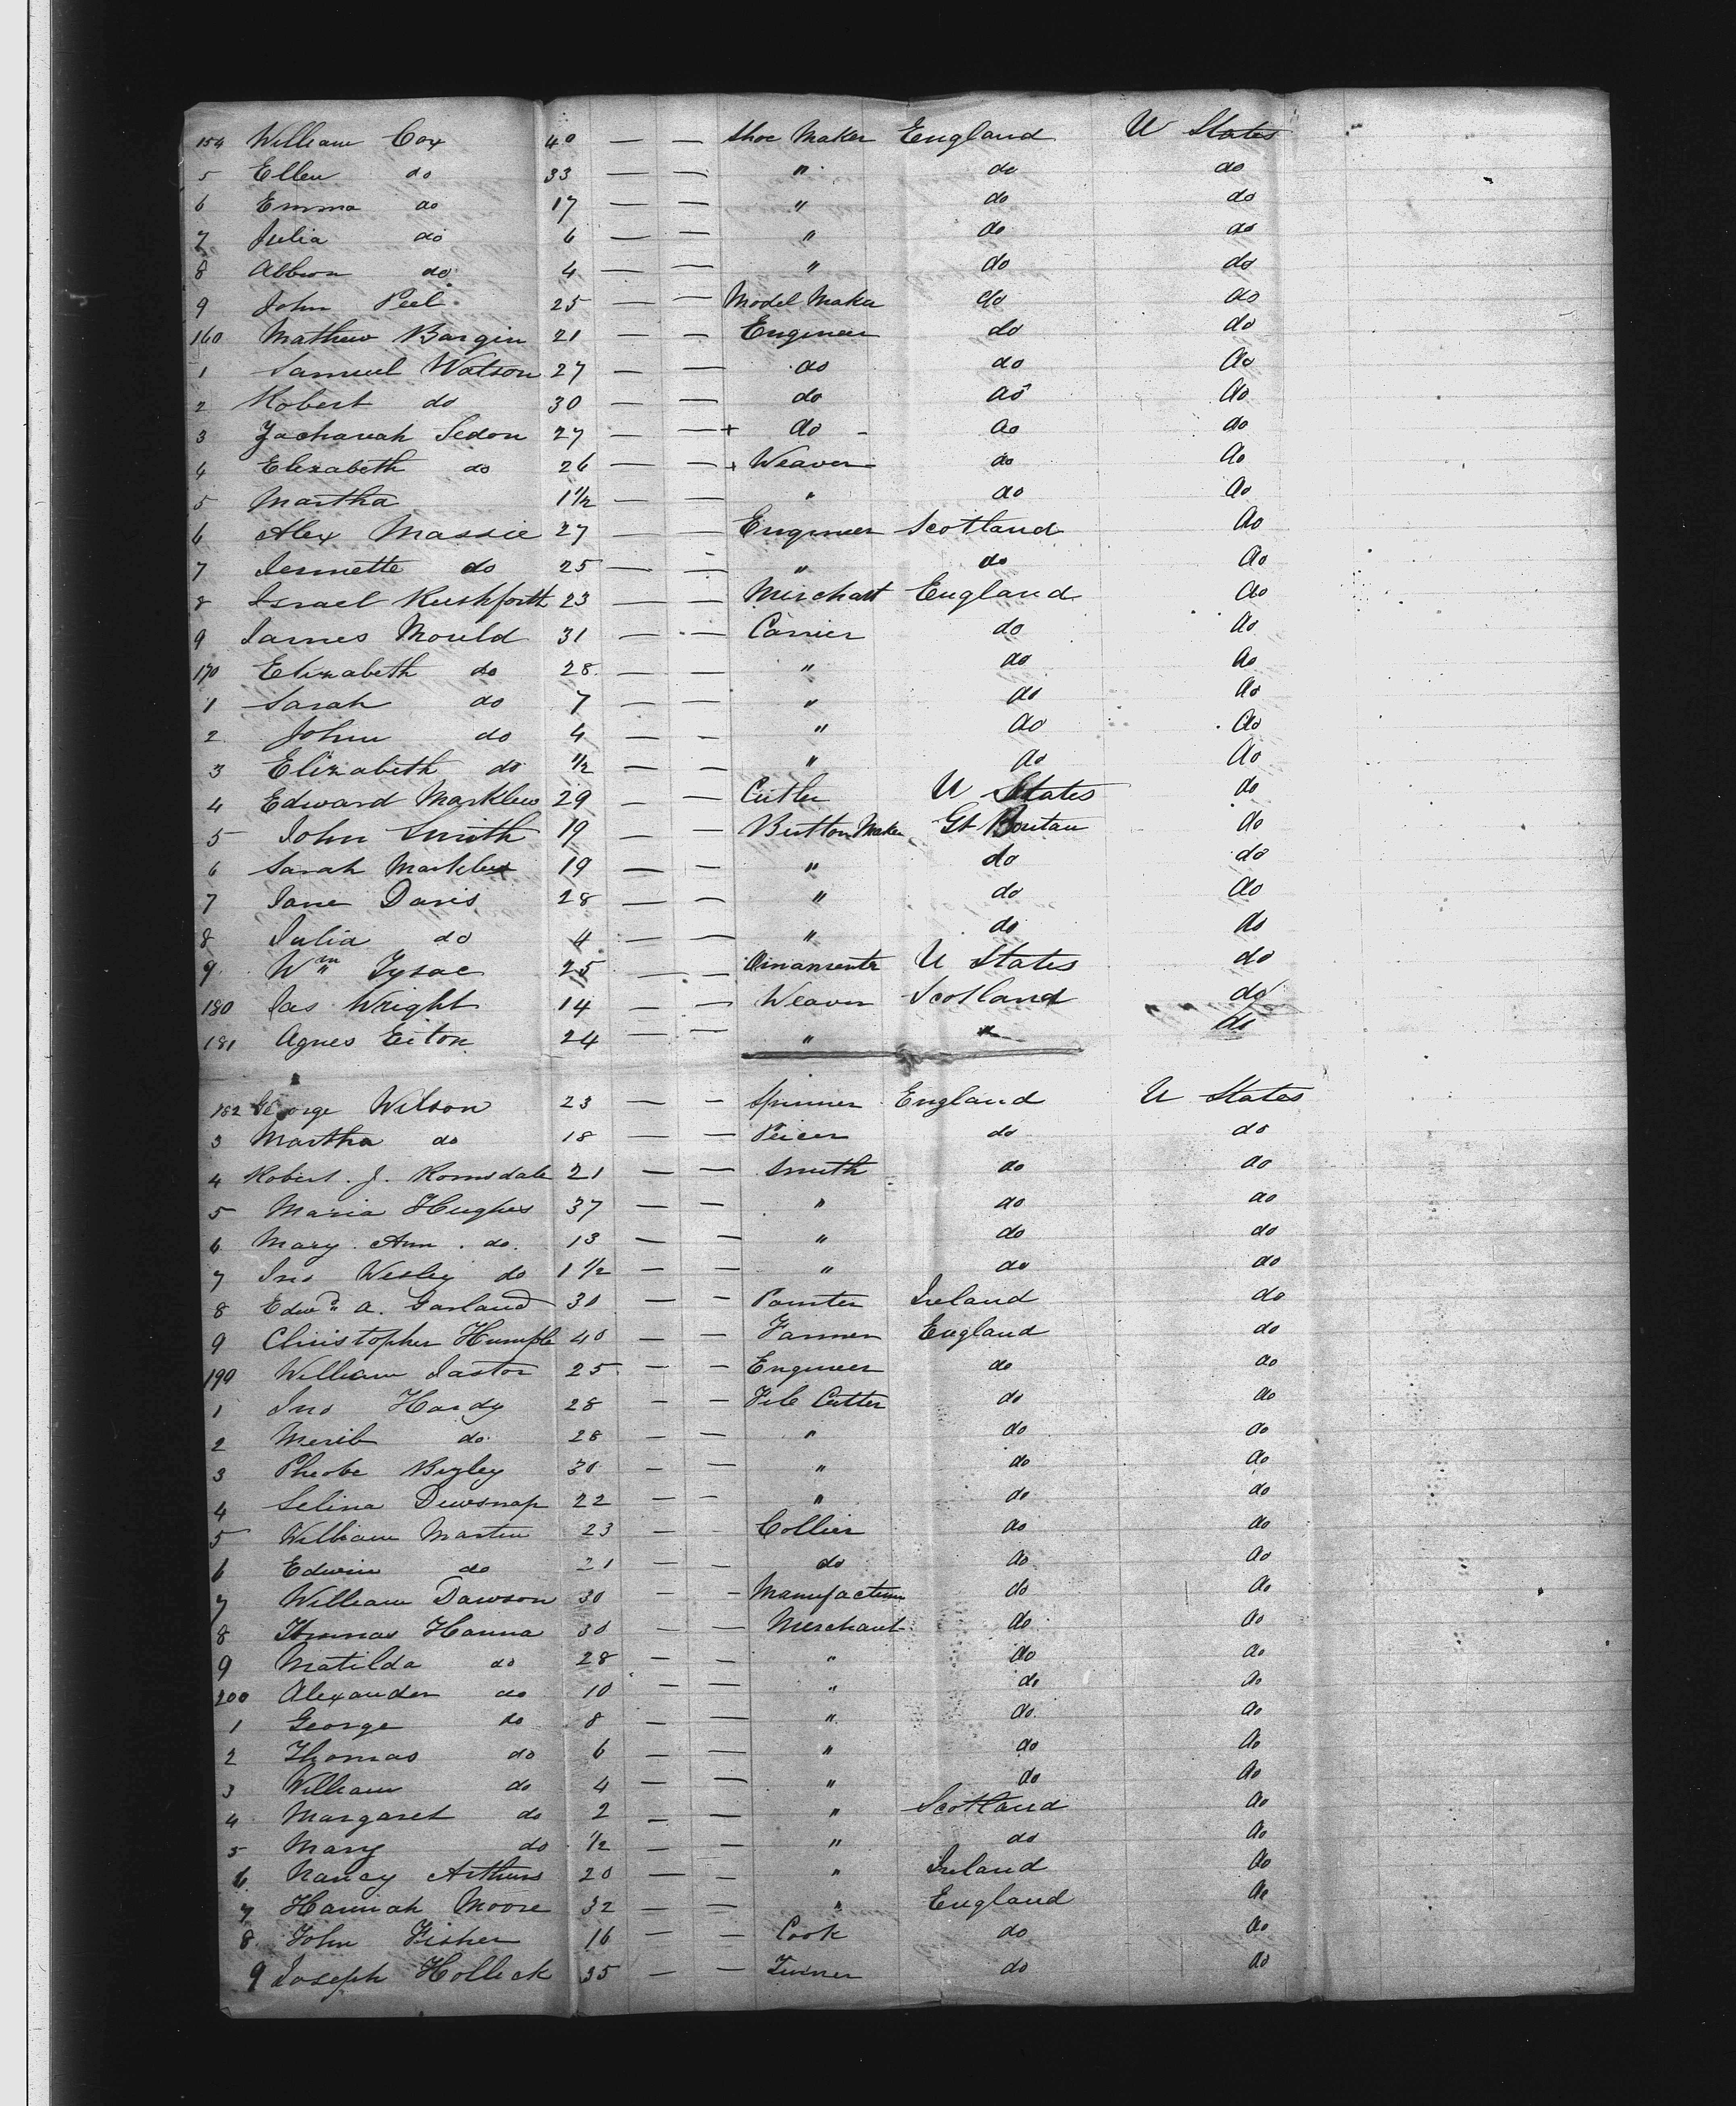 154 William Cox 40 — — Shoe Maker England U States
5 Ellen do 33 — — " do do
6 Emma do 17 — — " do do
7 Julia do 6 — — " do do
8 Albion do 4 — — " do do
9 John Peel 25 — — Model Maker do do
160 Mathew Bargin 21 — — Engineer do do
1 Samuel Watson 27 — — do do do
2 Robert do 30 — — do do do
3 Zachariah Sedon 27 — — + do - do do
4 Elizabeth do 26 — — + Weaver do do
5 Martha 1 1/2 — — " do do
6 Alex Massie 27 — — Engineer Scotland do
7 Jennette do 25 — — " do do
8 Israel Rushforth 23 — — Merchant England do
9 James Mould 31 — — Carrier do do
170 Elizabeth do 28 — — " do do
1 Sarah do 7 — — " do do
2 John do 4 — — " do do
3 Elizabeth do 1/2 — — " do do
4 Edward Marklew 29 — — Cutler U States do
5 John Smith 19 — — Button Maker Gt Britain do
6 Sarah Marklew 19 — — " do do
7 Jane Davis 28 — — " do do
8 Julia do 4 — — " do do
9 Wm Tysac 25 — — U States do
180 Jas Wright 14 — — Weaver Scotland do
181 Agnes Eiton 24 — — " " do
182 George Wilson 23 — — Spinner England U States
3 Martha do 18 — — Peicer do do
4 Robert . J . Romsdale 21 — — Smith do do
5 Maria Hughes 37 — — " do do
6 Mary Ann do 13 — — " do do
7 Jno Wesley do 1 1/2 — — " do do
8 Edwd A. Garland 30 — — Painter Ireland do
9 Christopher Humple 40 — — Farmer England do
190 William Jastor 25 — — Engineer do do
1 Jno Hardy 28 — — File Cutter do do
2 Merib do 28 — — " do do
3 Pheobe Bigley 30 — — " do do
4 Selina Dewsnap 22 — — " do do
5 William Martin 23 — Collier do do
6 Edwin do 21 — — do do do
7 William Dawson 30 — — Manufacturer do do
8 Thomas Hanna 30 — — Merchant do do
9 Matilda do 28 — — " do do
200 Alexander do 10 — — " do do
1 George do 8 — — " do do
2 Thomas do 6 — — " do do
3 William do 4 — — " do do
4 Margaret do 2 — — " Scotland do
5 Mary do 1/2 — — " do do
6 Nancy Arthurs 20 — — " Ireland do
7 Hannah Moore 32 — — " England do
8 John Fisher 16 — — Cook do do
9 Joseph Holleck 35 — — Turner do do